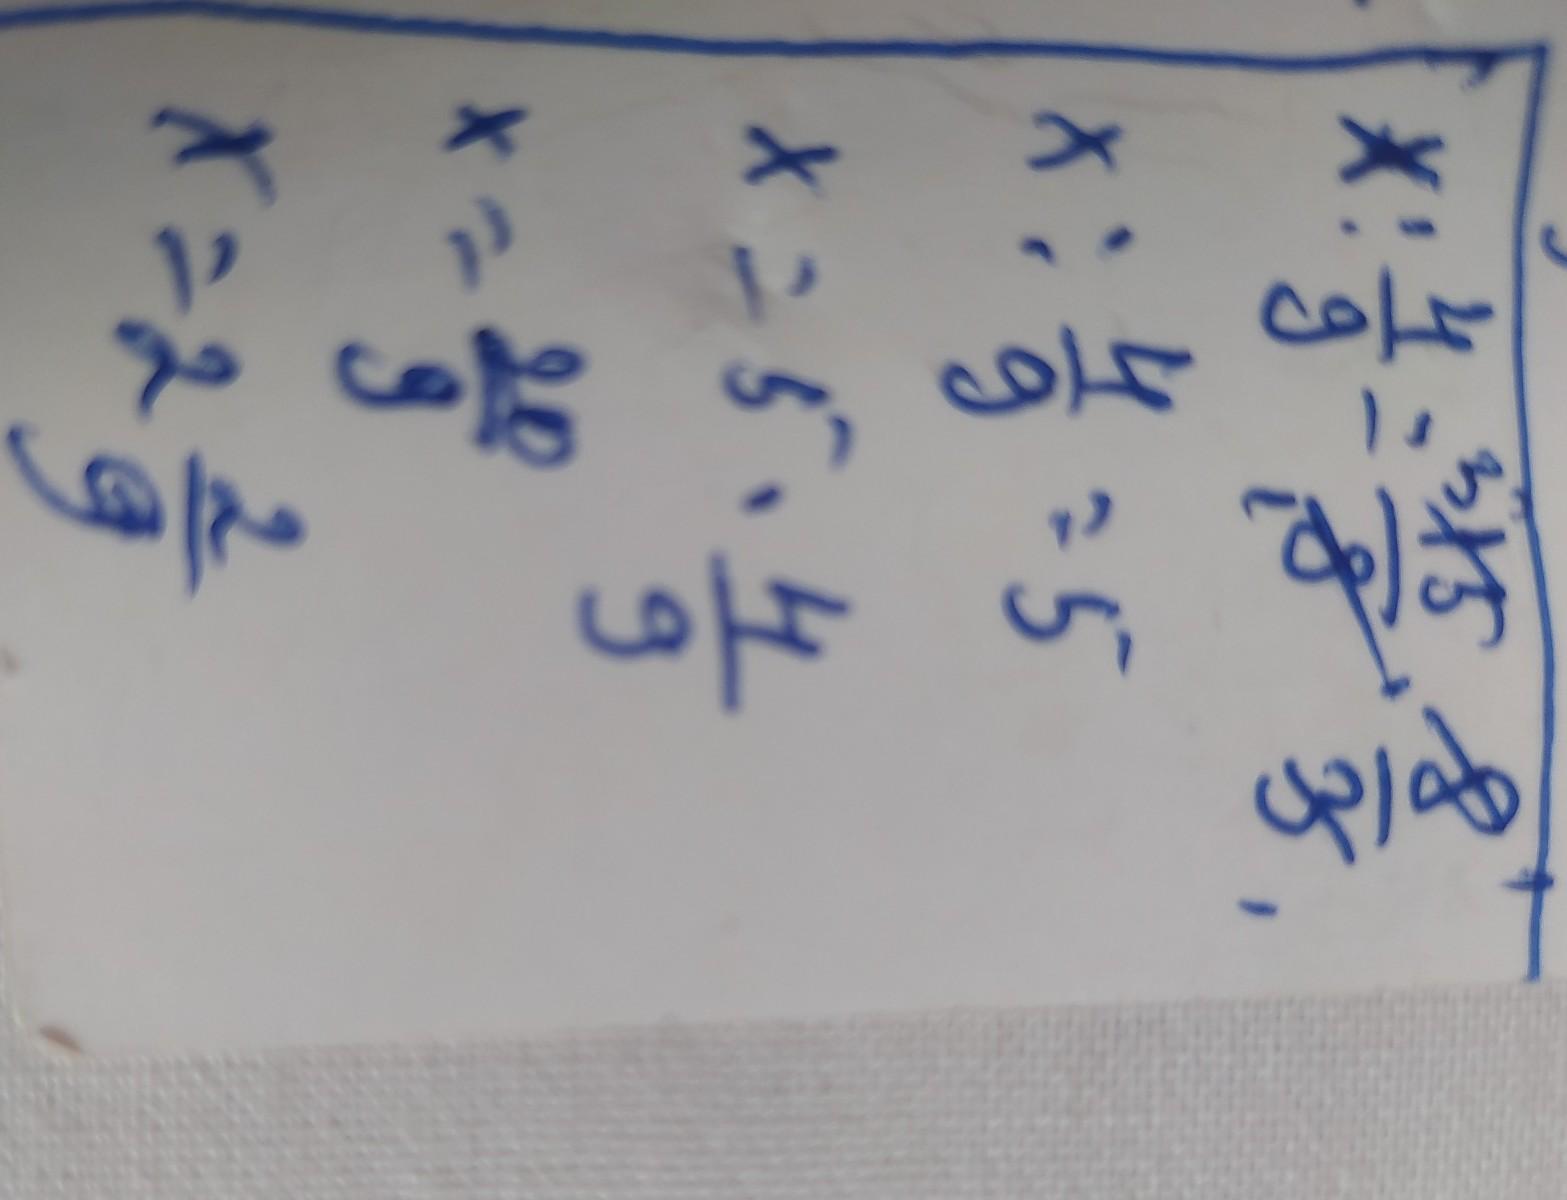 x : 4/9 = 15/8 · 8/3
x : 4/9 = 5
x = 5 · 4/9
x = 20/9
x = 2 2/9